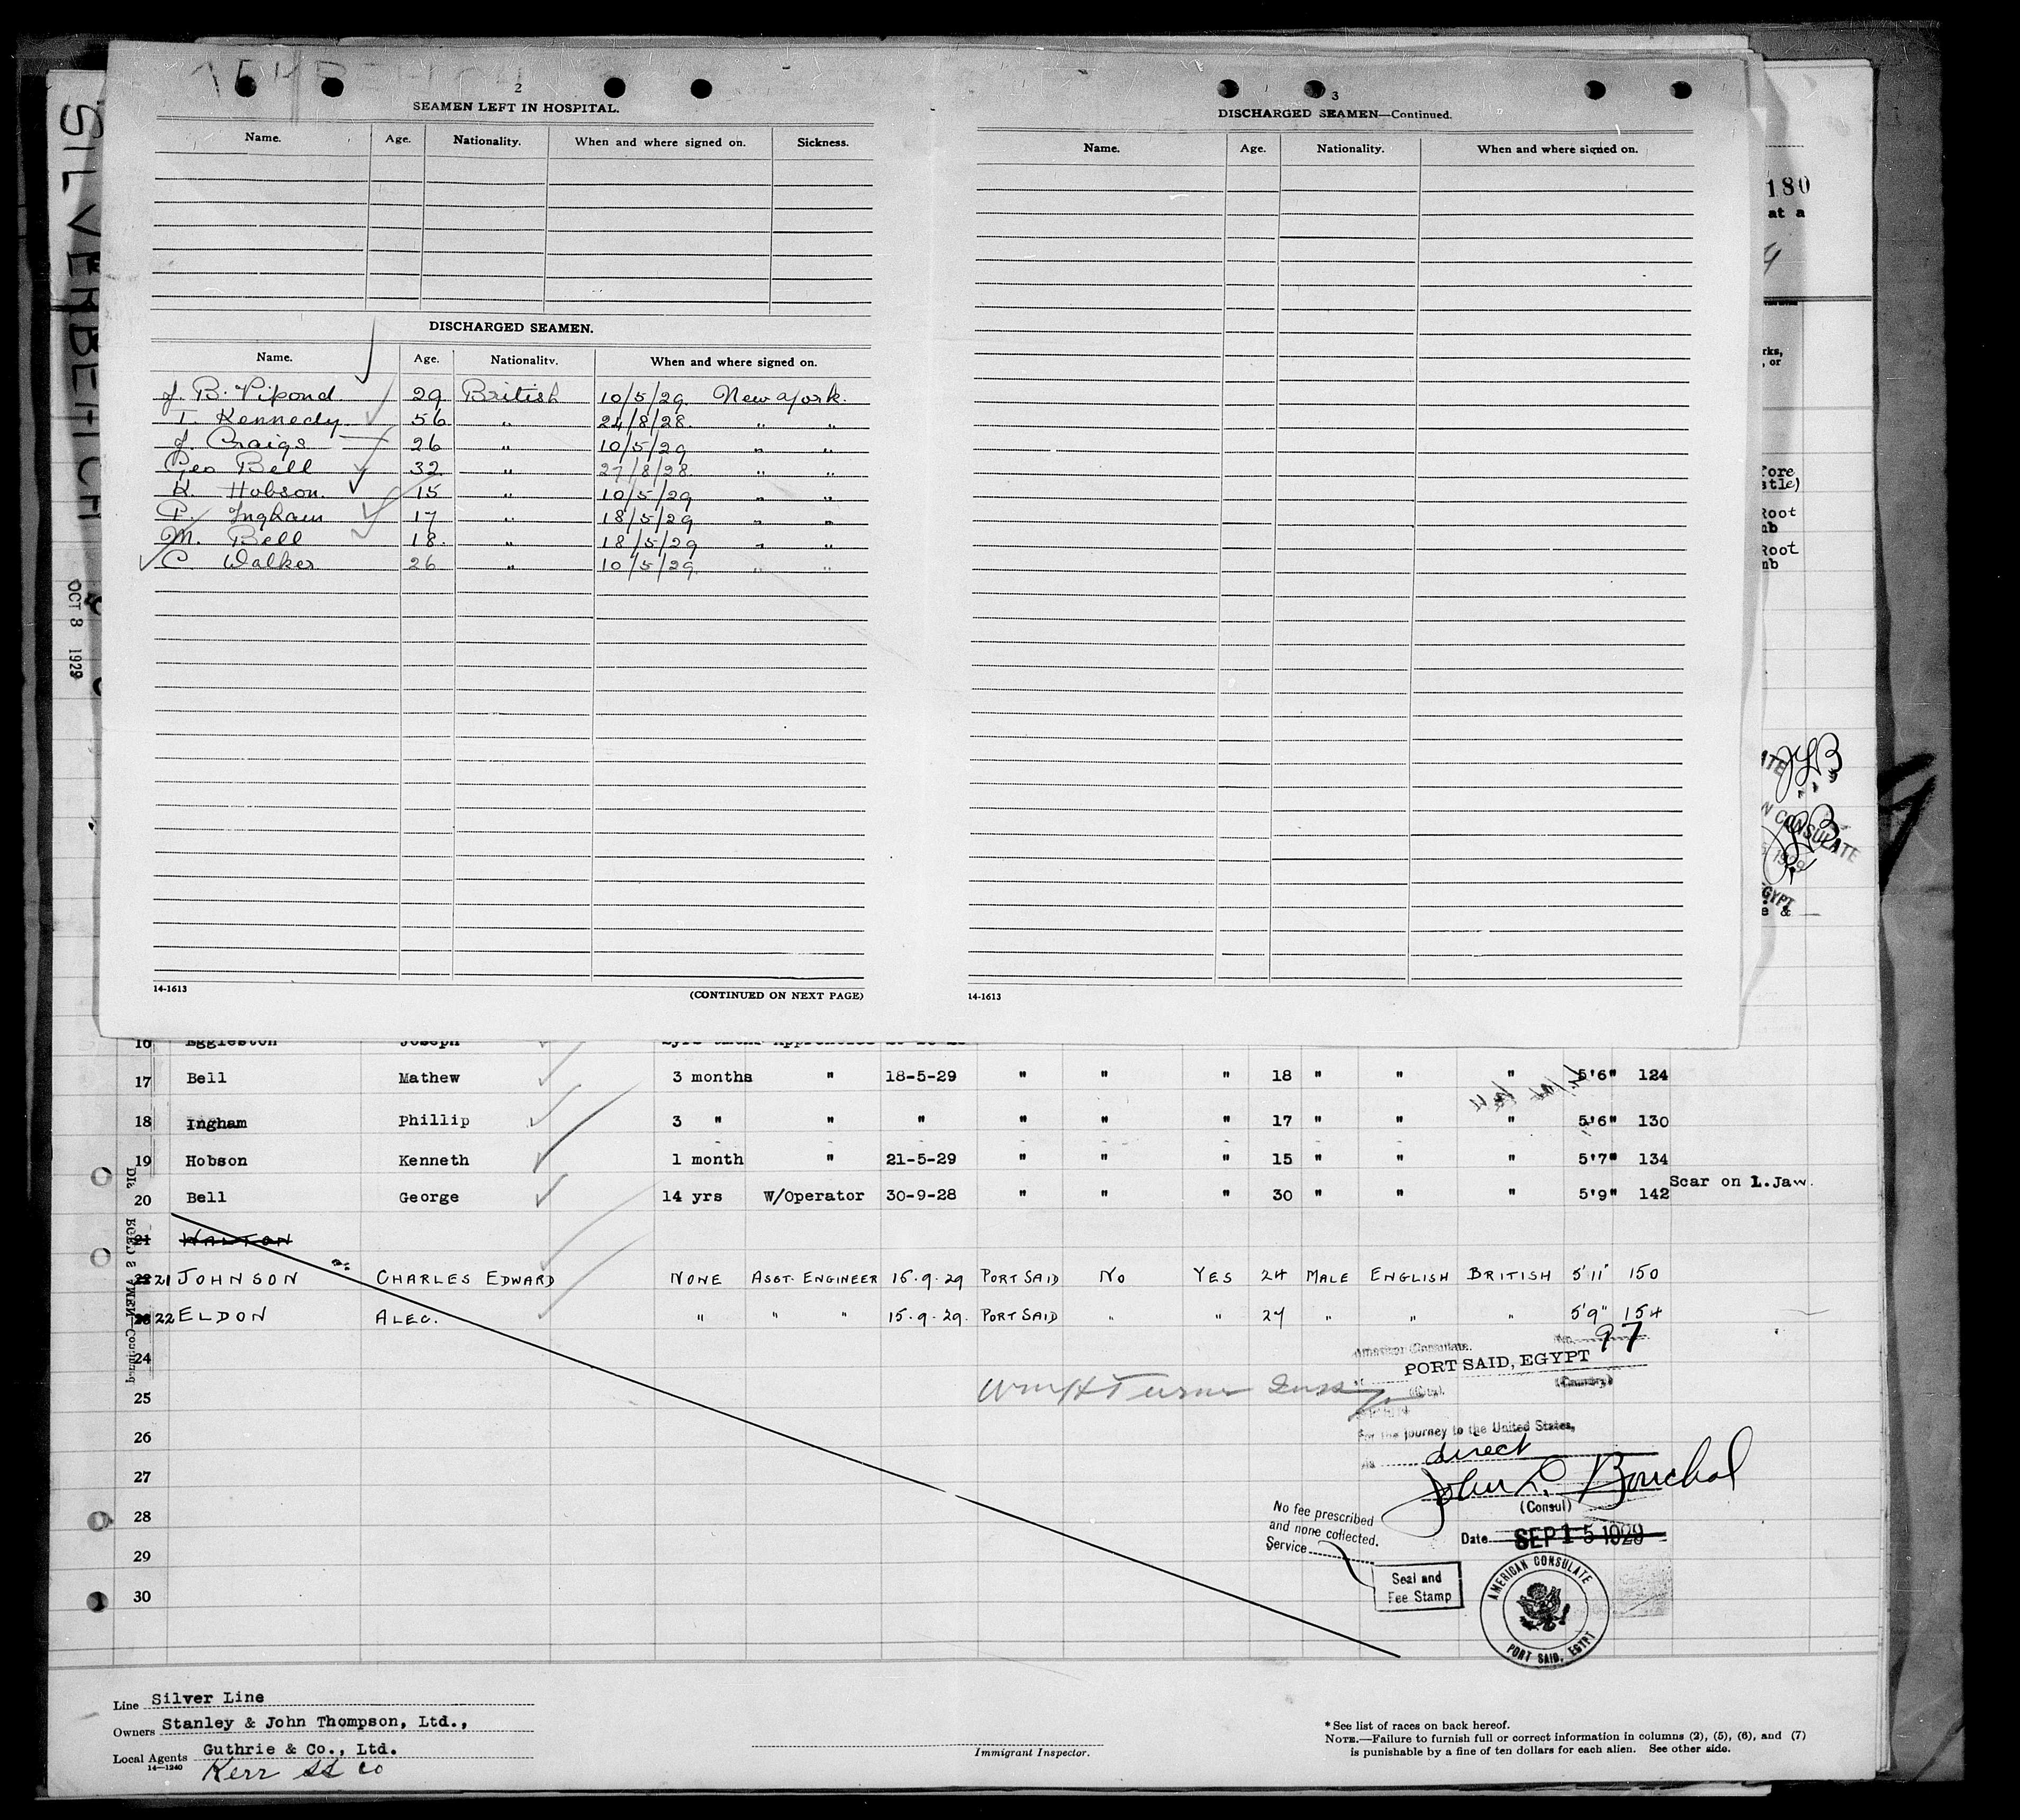 SILVERBEECH
OCT 8 1929
2
SEAMEN LEFT IN HOSPITAL.
Name. Age. Nationality. When and where signed on. Sickness.
DISCHARGED SEAMEN.
Name. Age. Nationality. When and where signed on.
J. B. Pipond 29 British 10/5/29 New York.
T. Kennedy 56 " 24/8/28 " "
J. Craigs 26 " 10/5/29 " "
Geo Bell 32 " 27/8/28 " "
K. Hobson. 15 " 10/5/29 " "
P. Ingham 17 " 18/5/29 " "
M. Bell 18. " 18/5/29 " "
C Walker 26 " 10/5/29 " "
14-1613 (CONTINUED ON NEXT PAGE)
3
DISCHARGED SEAMEN—Continued.
Name. Age. Nationality. When and where signed on.
14-1613
180
at a
rks,
, or
Root
Root
CONSULATE
EGYPT
e &
16 Eggleston Joseph
17 Bell Mathew 3 months " 18-5-29 " " " 18 " " " 5'6" 124
18 Ingham Phillip 3 " " " " " " 17 " " " 5'6" 130
19 Hobson Kenneth 1 month " 21-5-29 " " " 15 " " " 5'7" 134
20 Bell George 14 yrs W/Operator 30-9-28 " " " 30 " " " 5'9" 142 Scar on L.Jaw.
21 WALTON
21 JOHNSON CHARLES EDWARD NONE ASST. ENGINEER 15.9.29 PORT SAID NO YES 24 MALE ENGLISH BRITISH 5'11" 150
22 ELDON ALEC. " " " 15.9.29. PORT SAID " " 27 " " " 5'9" 154
24
25
26
27
28
29
30
No. 97
American Consulate.
PORT SAID, EGYPT
(City). (Country)
For the journey to the United States,
As direct
John L. Bouchal
(Consul)
Date SEP 15 1929
No fee prescribed
and none collected.
Service
Seal and
Fee Stamp
AMERICAN CONSULATE
PORT SAID, EGYPT
Wm H Turner
Line Silver Line
Owners Stanley & John Thompson, Ltd.,
Local Agents Guthrie & Co., Ltd.
14—1240 Kerr SS Co
Immigrant Inspector.
*See list of races on back hereof.
NOTE.—Failure to furnish full or correct information in columns (2), (5), (6), and (7)
is punishable by a fine of ten dollars for each alien. See other side.